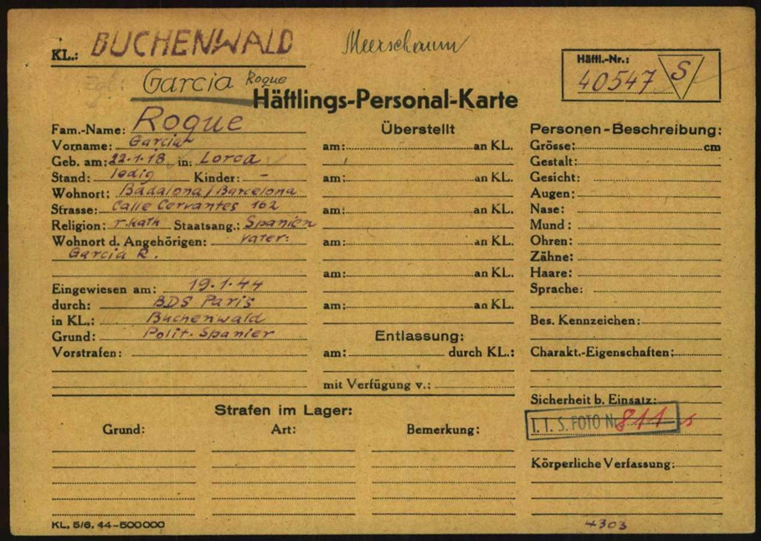 KL.: BUCHENWALD
Meerschaum
Häftl.-Nr.:
40547 S
Garcia Roque
Häftlings-Personal-Karte
Fam.-Name: Roque
Vorname: Garcia
Geb. am: 22.1.18 in: Lorca
Stand: ledig Kinder: -
Wohnort: Badalona/Barcelona
Strasse: Calle Cervantes 162
Religion: r.kath Staatsang.: Spanien
Wohnort d. Angehörigen: Vater:
Garcia R.
Eingewiesen am: 19.1.44
durch: BDS Paris
in KL.: Buchenwald
Grund: Polit-Spanier
Vorstrafen:
Überstellt
am: an KL.
am: an KL.
am: an KL.
am: an KL.
am: an KL.
am: an KL.
Entlassung:
am: durch KL.:
mit Verfügung v.:
Personen-Beschreibung:
Grösse: cm
Gestalt:
Gesicht:
Augen:
Nase:
Mund:
Ohren:
Zähne:
Haare:
Sprache:
Bes. Kennzeichen:
Charakt.-Eigenschaften:
Sicherheit b. Einsatz:
I. T. S. FOTO Nr. 811
Körperliche Verfassung:
Strafen im Lager:
Grund: Art: Bemerkung:
KL. 5/6. 44-500000
4303